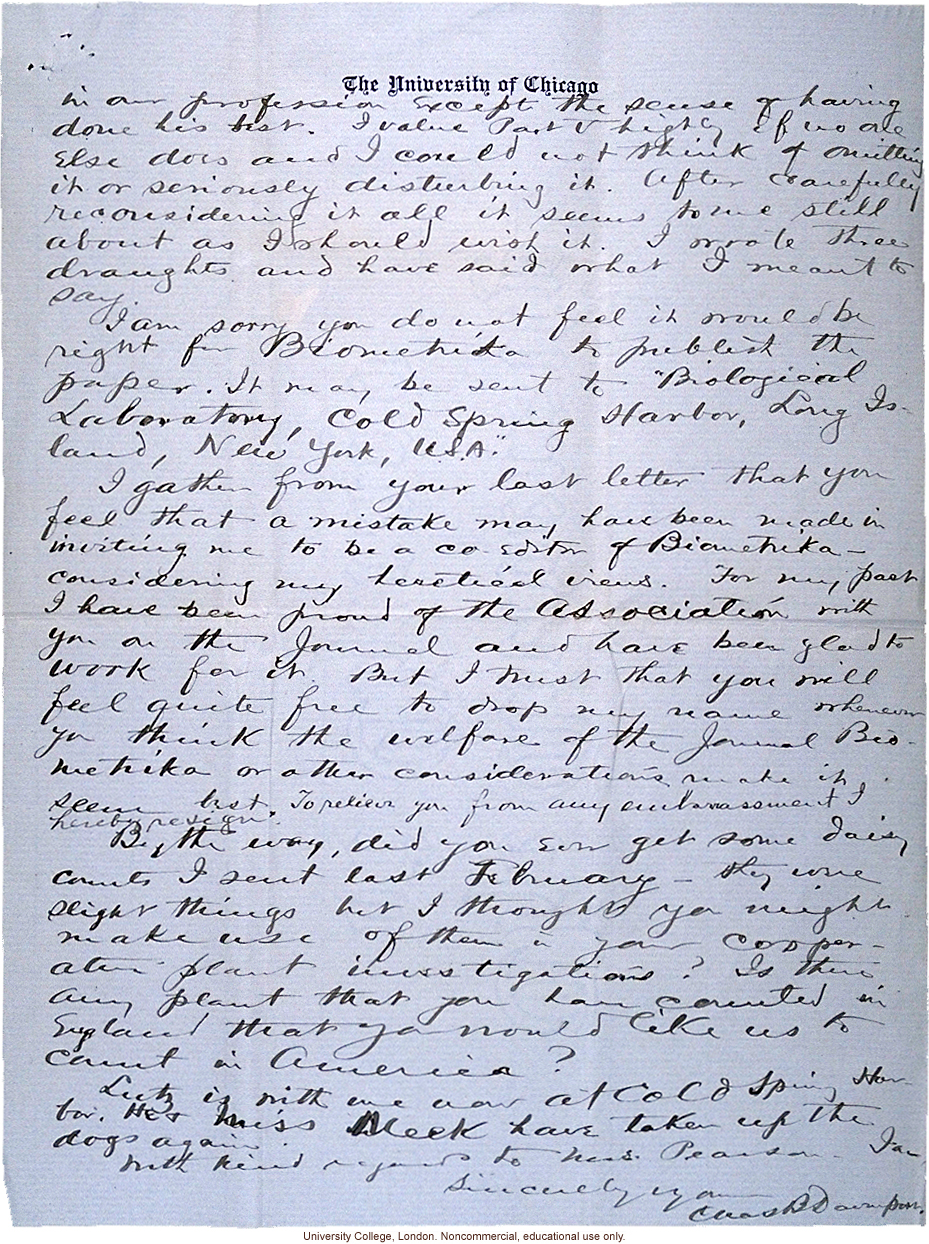 The University of Chicago
in our profession except the sense of having
done his best. I value Part V highly if no one
Else does and I could not think of omitting
it or seriously disturbing it. After carefully
reconsidering it all it seems to me still
about as I should wish it. I wrote three
draughts and have said what I meant to
say.
I am sorry you do not feel it would be
right for Biometrika to publish the
paper. It may be sent to "Biological
Laboratory, Cold Spring Harbor, Long Is-
land, New York, U.S.A."
I gather from your last letter that you
feel that a mistake may have been made in
inviting me to be a co-editor of Biometrika –
considering my heretical views. For my part
I have been proud of the Association with
you on the Journal and have been glad to
work for it. But I trust that you will
feel quite free to drop my name whenever
you think the welfare of the Journal Bio-
metrika or other considerations make it
seem best. To relieve you from any embarrassment I
hereby resign.
By the way, did you ever get some daisy
counts I sent last February – they were
slight things but I thought you might
make use of them in your cooper-
ative plant investigations? Is there
any plant that you have counted in
England that you would like us to
count in America?
Lutz is with me now at Cold Spring Har-
bor. He & Miss Meek have taken up the
dogs again.
With kind regards to Mrs. Pearson. I am
Sincerely yours
Chas B Davenport.
University College, London. Noncommercial, educational use only.